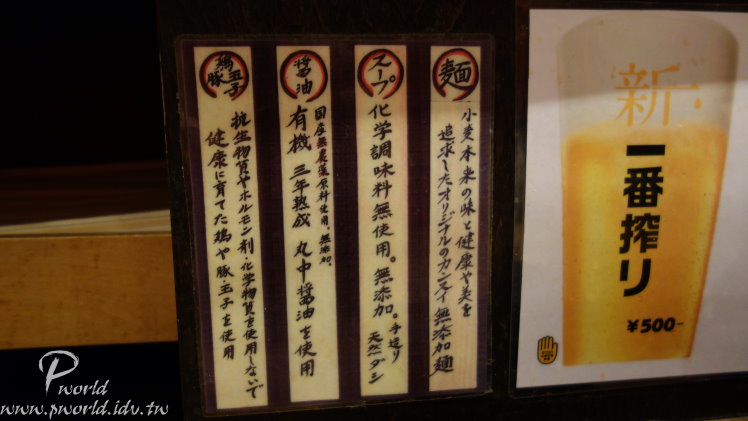 麺
小麦本来の味と健康や美を
追求したオリジナルのカンスイ無添加麺
スープ
化学調味料無使用。無添加。
手造り
天然ダシ
醤油
国産無農薬原料使用。無添加。
有機 三年熟成 丸中醤油を使用
鶏
豚
玉子
抗生物質やホルモン剤・化学物質を使用しないで
健康に育てた鶏や豚玉子を使用
新・
一番搾り
¥500-
Pworld
www.pworld.idv.tw